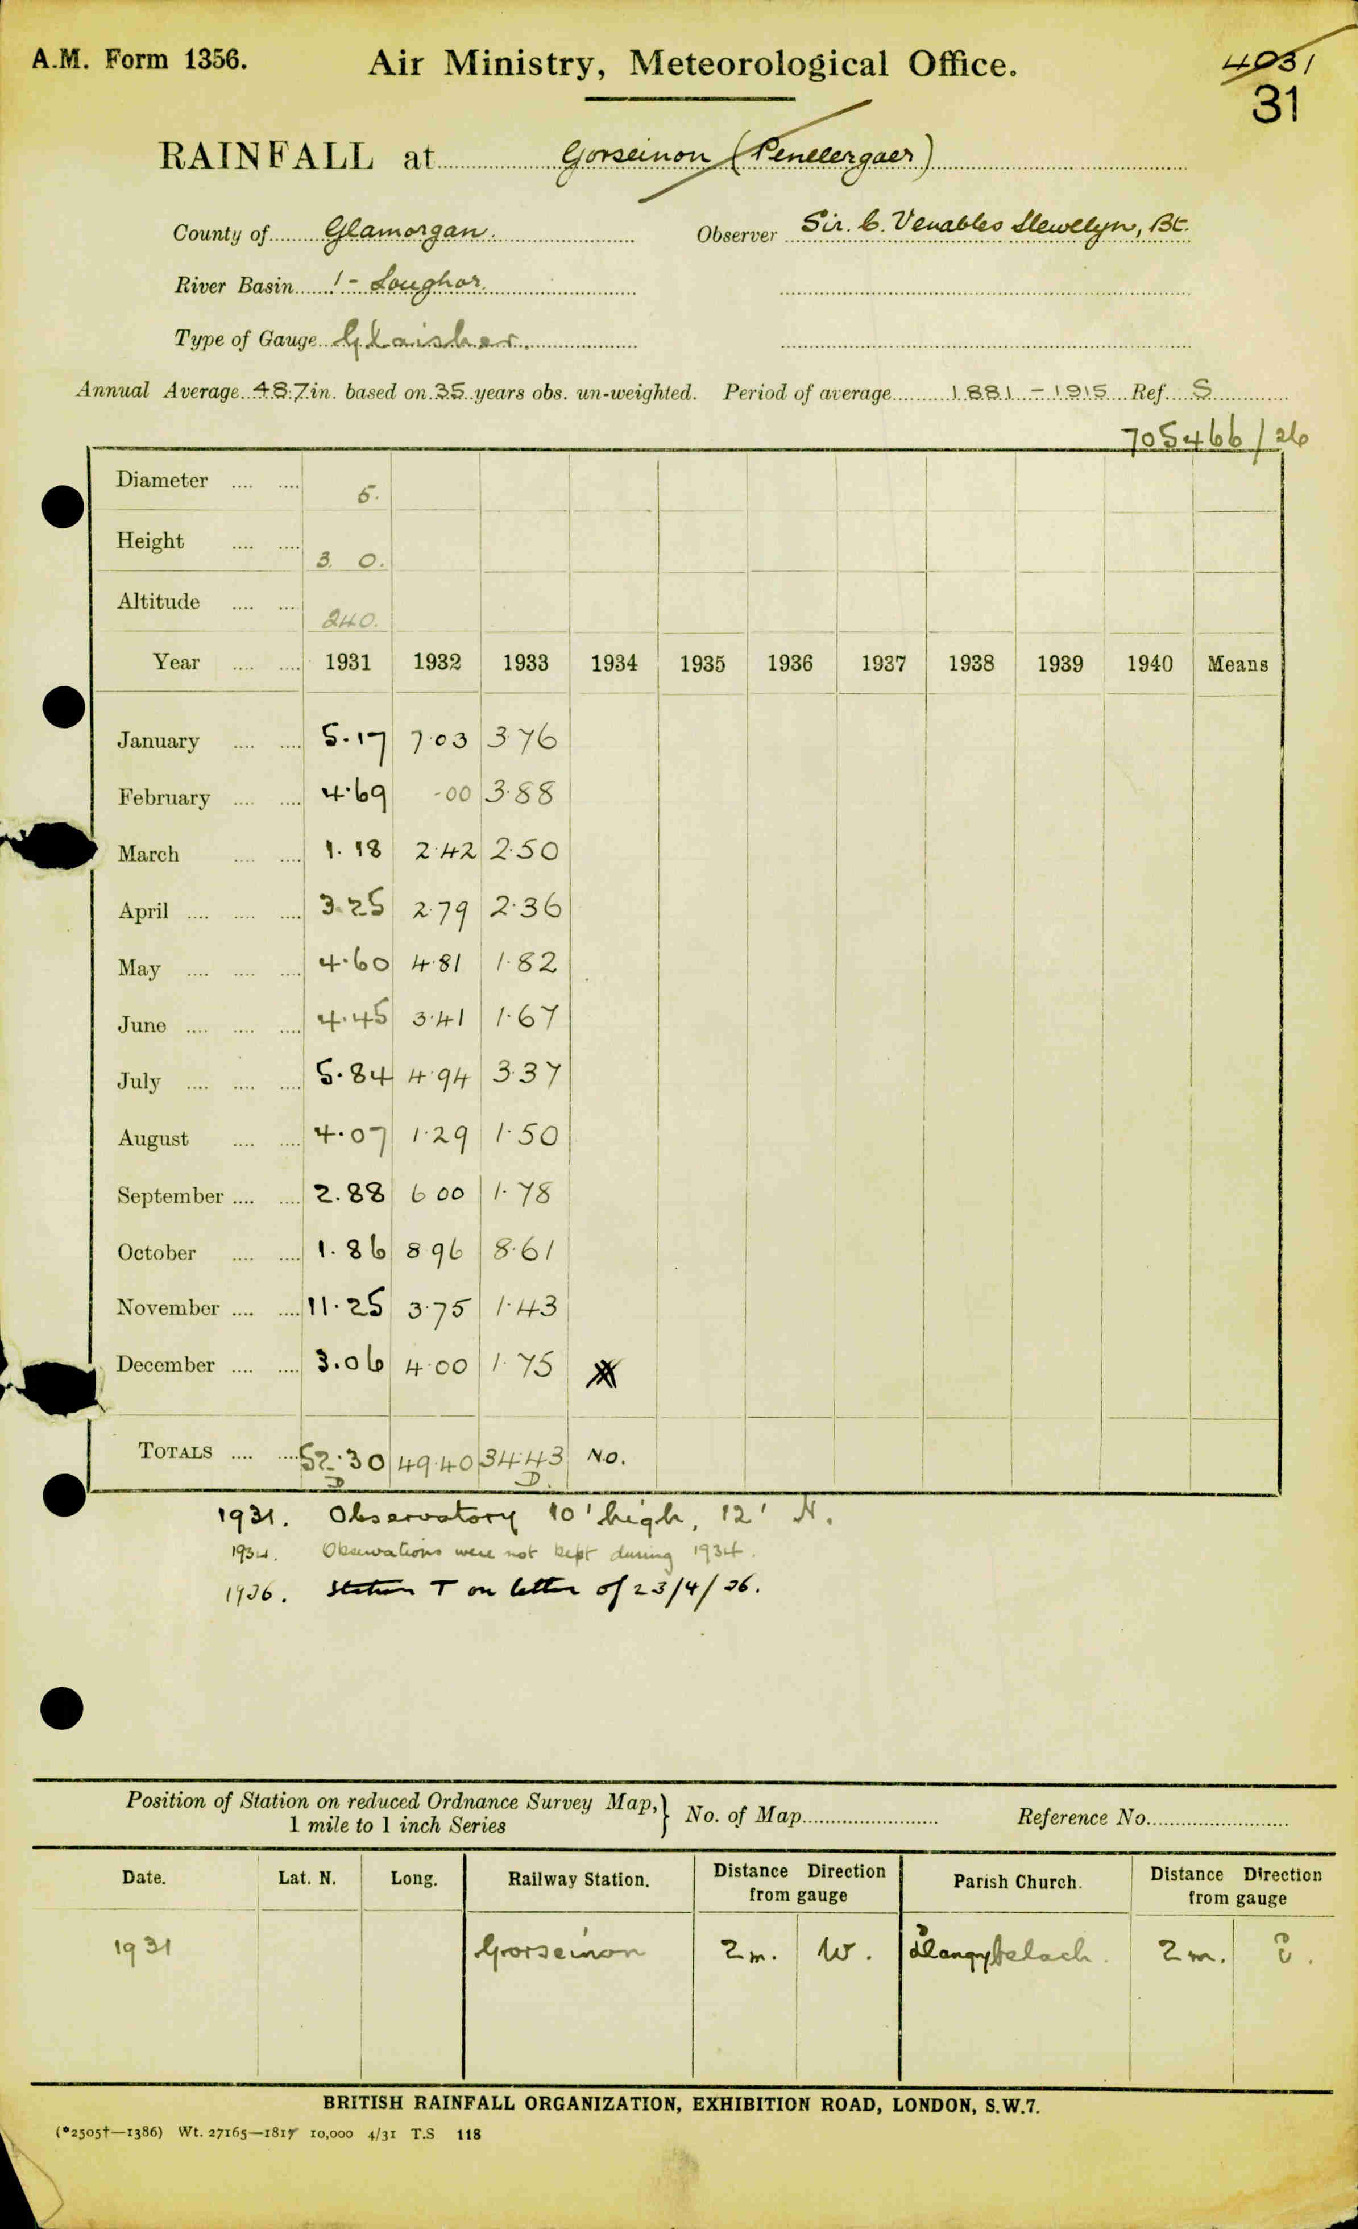 A.M. Form 1356.
Air Ministry, Meteorological Office.
4031
31
RAINFALL at Gorseinon (Penllergaer)
County of Glamorgan.
Observer Sir. C. Venables Llewelyn, Bt.
River Basin 1 - Loughor.
Type of Gauge Glaisher.
Annual Average 48.7 in. based on 35 years obs. un-weighted. Period of average 1881 - 1915 Ref. S
705466/26
Diameter .... .... 5.
Height .... .... 3. 0.
Altitude .... .... 240.
Year .... .... 1931 1932 1933 1934 1935 1936 1937 1938 1939 1940 Means
January .... .... 5.17 7.03 3.76
February .... .... 4.69 .00 3.88
March .... .... 1.18 2.42 2.50
April .... .... .... 3.25 2.79 2.36
May .... .... .... 4.60 4.81 1.82
June .... .... .... 4.45 3.41 1.67
July .... .... .... 5.84 4.94 3.37
August .... .... 4.07 1.29 1.50
September .... .... 2.88 6.00 1.78
October .... .... 1.86 8.96 8.61
November .... .... 11.25 3.75 1.43
December .... .... 3.06 4.00 1.75
TOTALS .... .... 52.30 49.40 34.43 No.
D D.
1931. Observatory 10' high, 12' N.
1934. Observations were not kept during 1934.
1936. Station T on letter of 23/4/36.
Position of Station on reduced Ordnance Survey Map, 1 mile to 1 inch Series } No. of Map Reference No.
Date. Lat. N. Long. Railway Station. Distance Direction from gauge Parish Church. Distance Direction from gauge
1931 Gorseinon 2 m. W. Llangyfelach. 2 m. E.
BRITISH RAINFALL ORGANIZATION, EXHIBITION ROAD, LONDON, S.W.7.
(*2505†—1386) Wt. 27165—1817 10,000 4/31 T.S 118